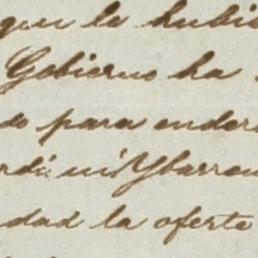 que le hubi
Gobierno ha
do para ender
ni Ybarren
dad la oferta